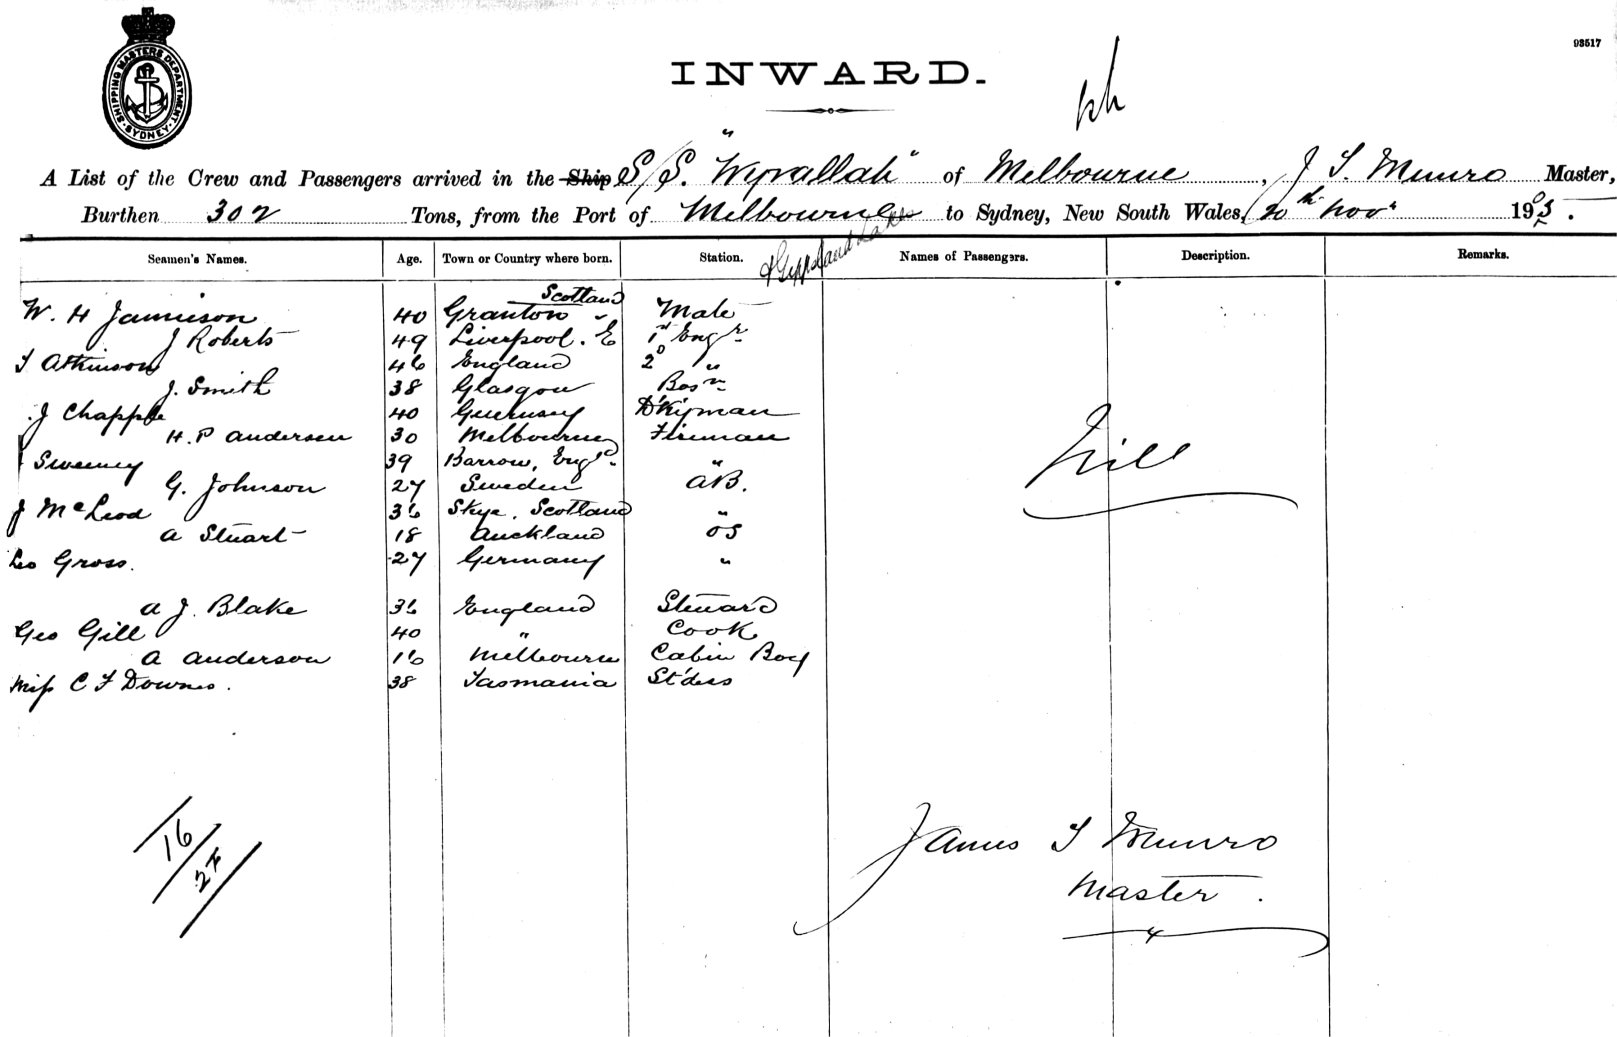 SHIPPING MASTERS DEPARTMENT
SYDNEY
93517
INWARD.
A List of the Crew and Passengers arrived in the Ship S/S. "Wyrallah" of Melbourne, J S. Munro Master,
Burthen 302 Tons, from the Port of Melbourne to Sydney, New South Wales, 20th Nov. 1903.
& Gippsland Lakes
Seamen's Names. Age. Town or Country where born. Station. Names of Passengers. Description. Remarks.
Scotland
W. H Jamieson 40 Granton Mate
J Roberts 49 Liverpool. E 1st Engr
T Atkinson 46 England 2D "
J. Smith 38 Glasgow Bosn
J Chapple 40 Guernsey D'Kyman
H. P Andersen 30 Melbourne Fireman
Sweeney 39 Barrow, Engd. "
G. Johnson 27 Sweden AB.
J McLeod 36 Skye. Scotland "
A Stuart 18 Auckland OS
Leo Gross. 27 Germany "
A J. Blake 36 England Steward
Geo Gill 40 " Cook
A Anderson 16 Melbourne Cabin Boy
Miss C F Downes. 38 Tasmania St'dess
Nill
16
2F
James S Munro
Master.